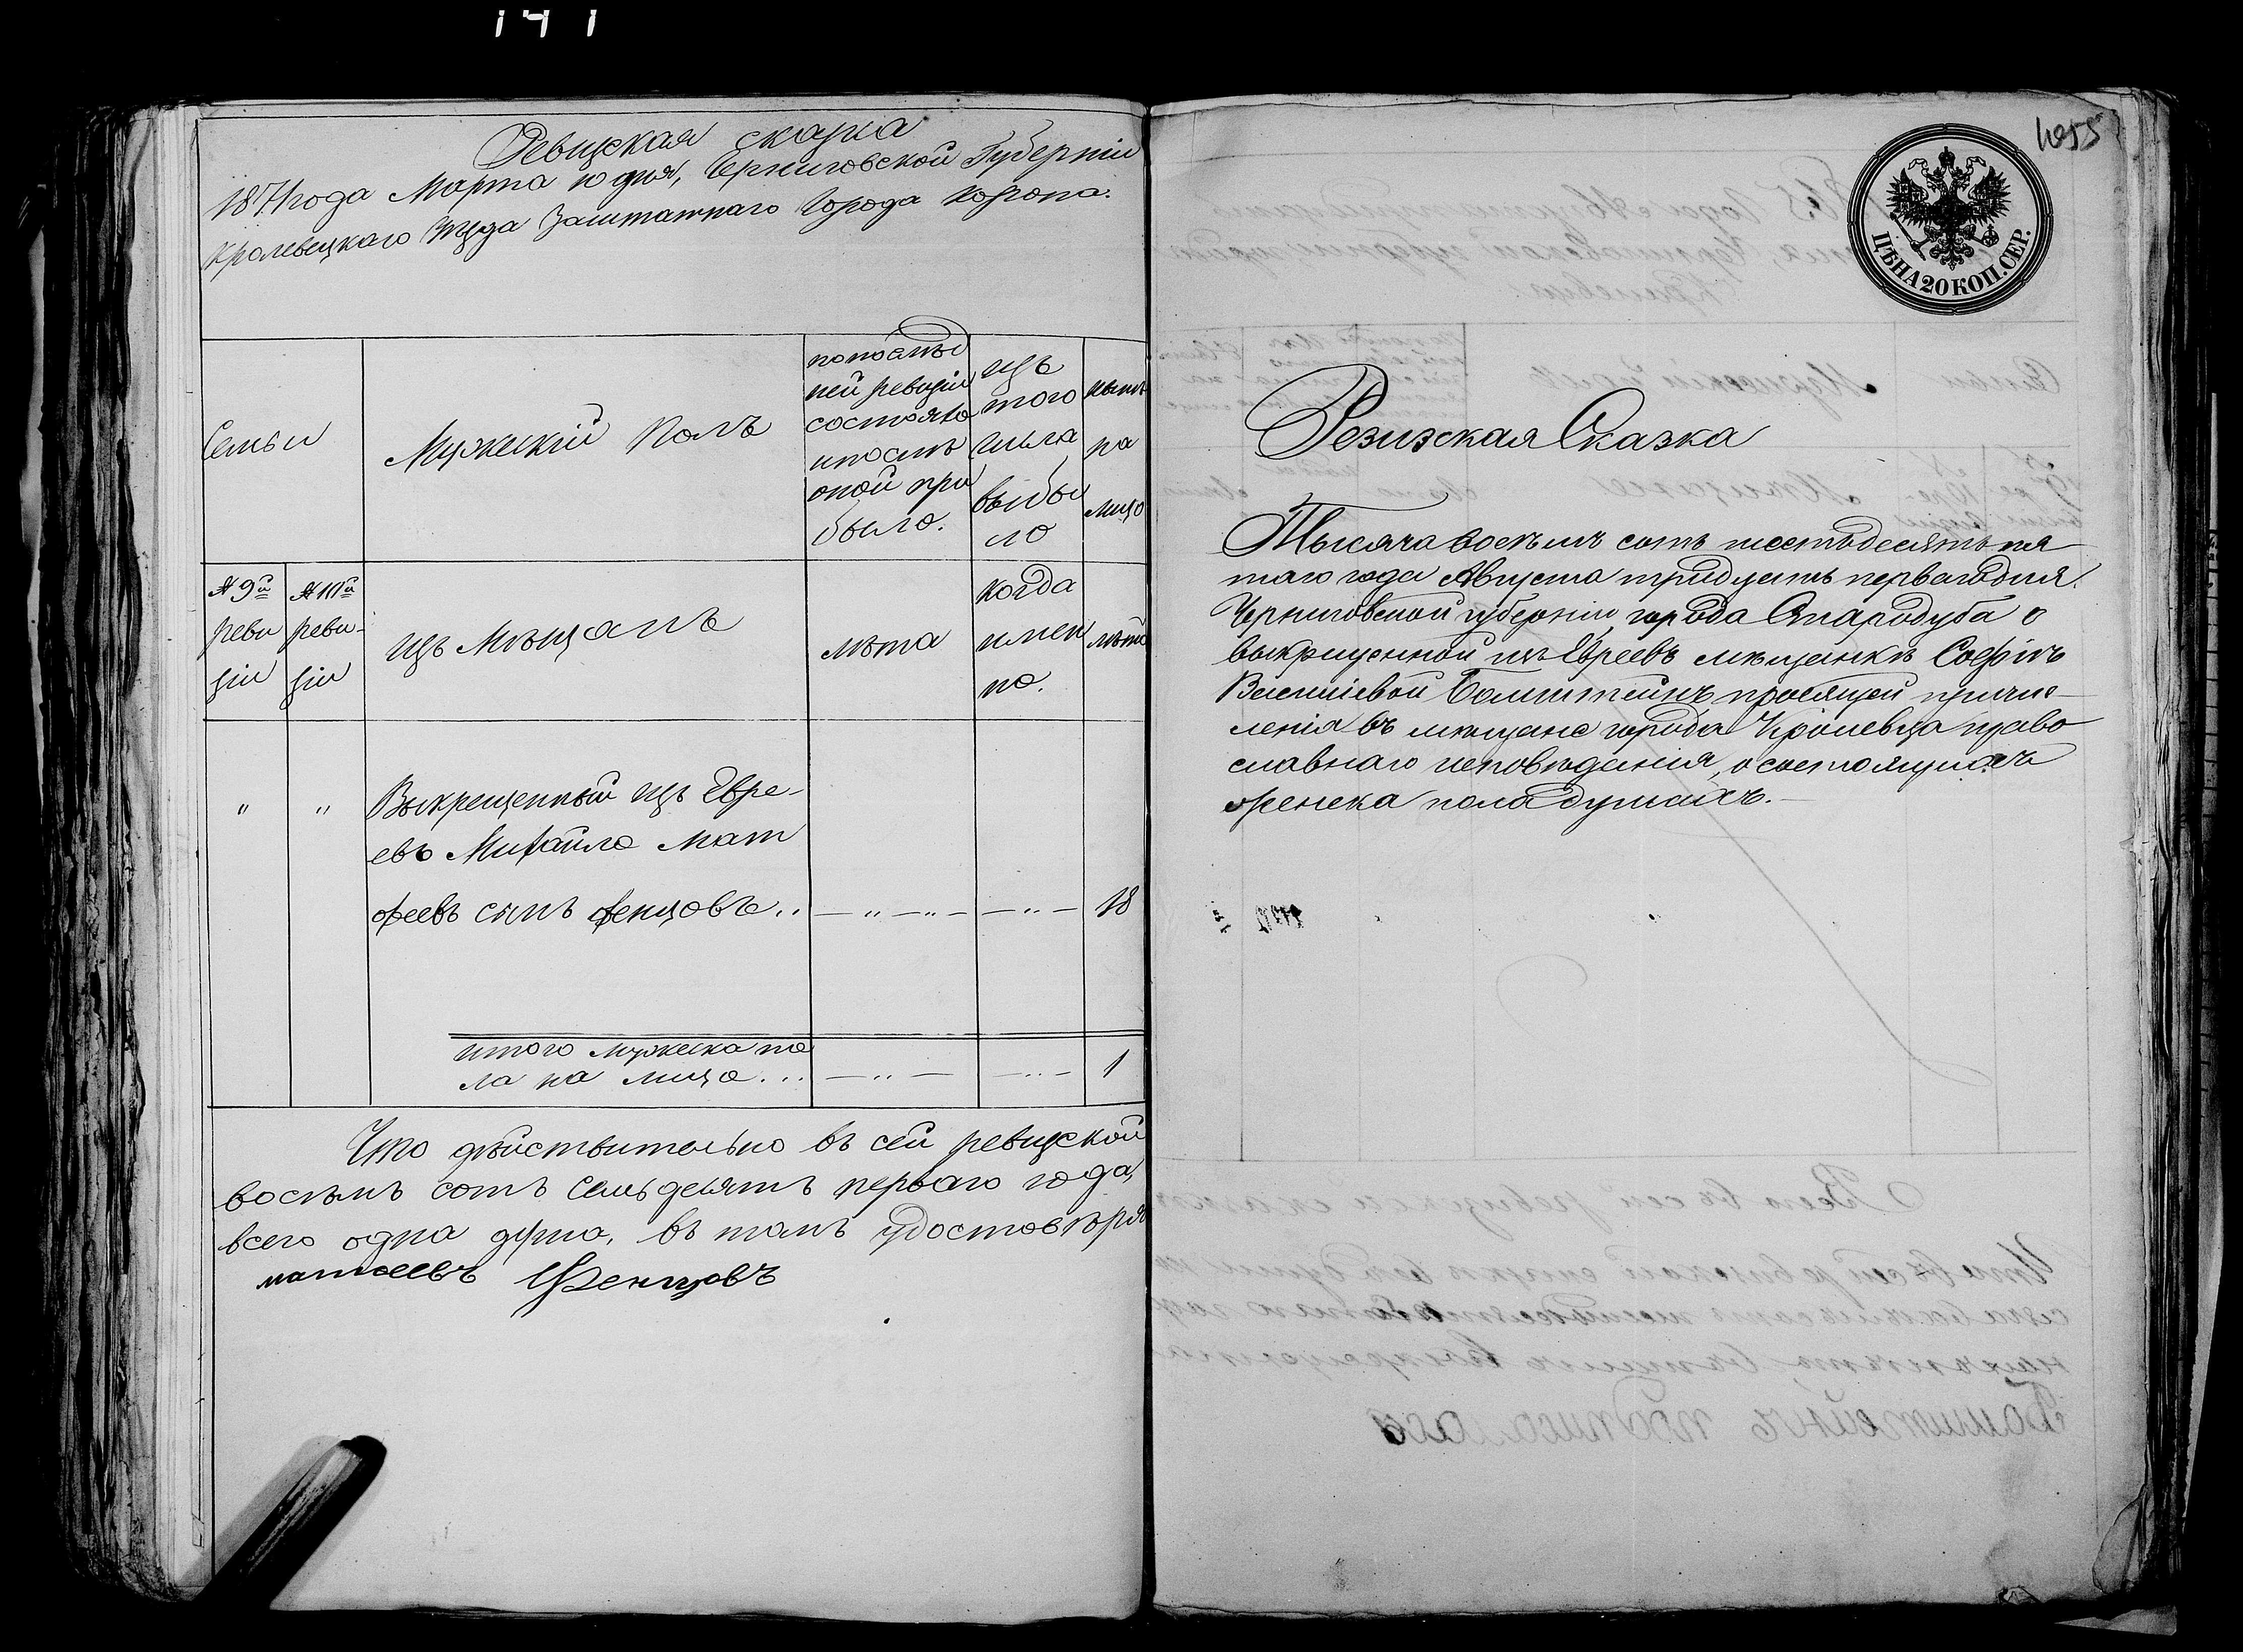 141
Ревизская сказка
1871 года Марта 10 дня, Черниговской Губерніи
Кролевецкаго Уѣзда Заштатнаго Города Коропа.
Семьи
Мужескій Полъ
по послѣд
ней ревизіи
состояло
и послѣ
оной при
было.
изъ
того
числа
выбы
ло
нынѣ
на
лицо
№ 9й
реви
зіи
№ 10й
реви-
зіи
изъ Мѣщанъ
лѣта
когда
имен
но.
лѣта
" " Выкрещенный изъ Евре-
евъ Михайло Мат
феевъ сынъ Фенцовъ .. — " — " — — " — 18
итого мужеска по
ла на лицо ... — " — — " — 1
Что дѣйствительно въ сей ревизской
восемь сотъ семьдесятъ перваго года,
всего одна душа, въ томъ удостовѣря
матвеевъ Фенцовъ
1055
ЦѢНА 20 КОП. СЕР.
Ревизская Сказка
Тысяча восемь сотъ шестьдесятъ пя
таго года Августа тридцать перваго дня.
Черниговской губерніи города Стародуба о
выкрещенной изъ Евреевъ мѣщанкѣ Софіи
Васильевой Бомштейнъ, просящей причис-
ленія въ мѣщане города Кролевца право
славнаго исповѣданія, о состоящихъ
женска пола душахъ. —